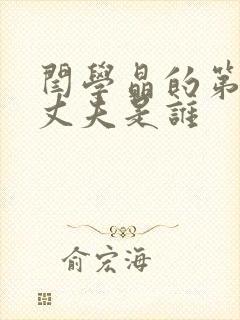 閆學晶的第
丈夫是誰
俞宏海